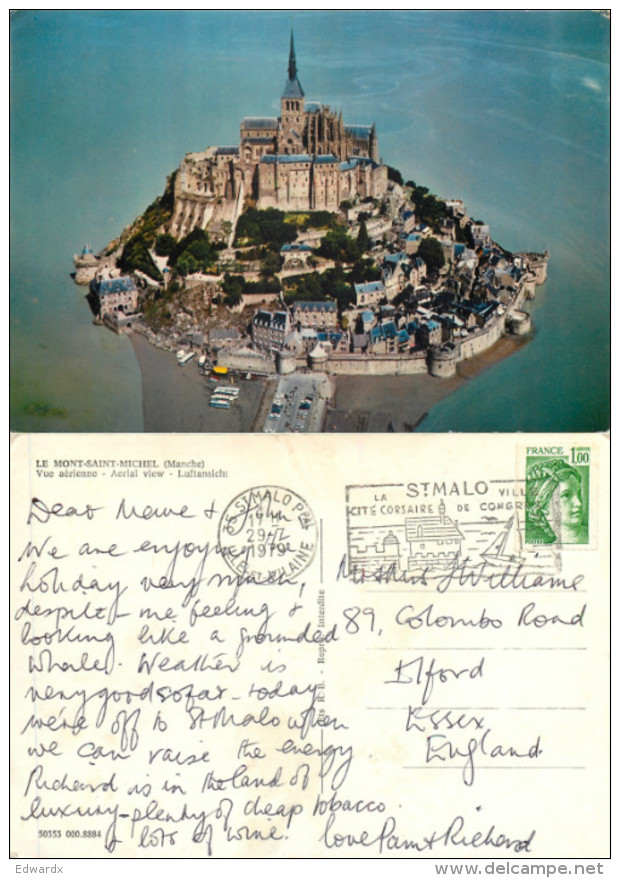 LE MONT-SAINT-MICHEL (Manche)
Vue aérienne - Aerial view - Luftansicht
FRANCE 1,00
35 ST MALO PPAL
17 H
29-7
1979
ILLE ET VILAINE
ST MALO
LA CITE CORSAIRE
VILLE DE CONGR
Dear & John
We are enjoying the
holiday very much,
despite me feeling &
looking like a grounded
whale. Weather is
very good so far - today
we're off to St Malo when
we can raise the energy.
Richard is in the land of
luxury - plenty of cheap tobacco
& lots of wine. love Pam & Richard
Mr & Mrs J Williams
89, Colombo Road
Ilford
Essex
England
Reprod. Interdite
50353 000.8884
Edwardx
delcampe.net